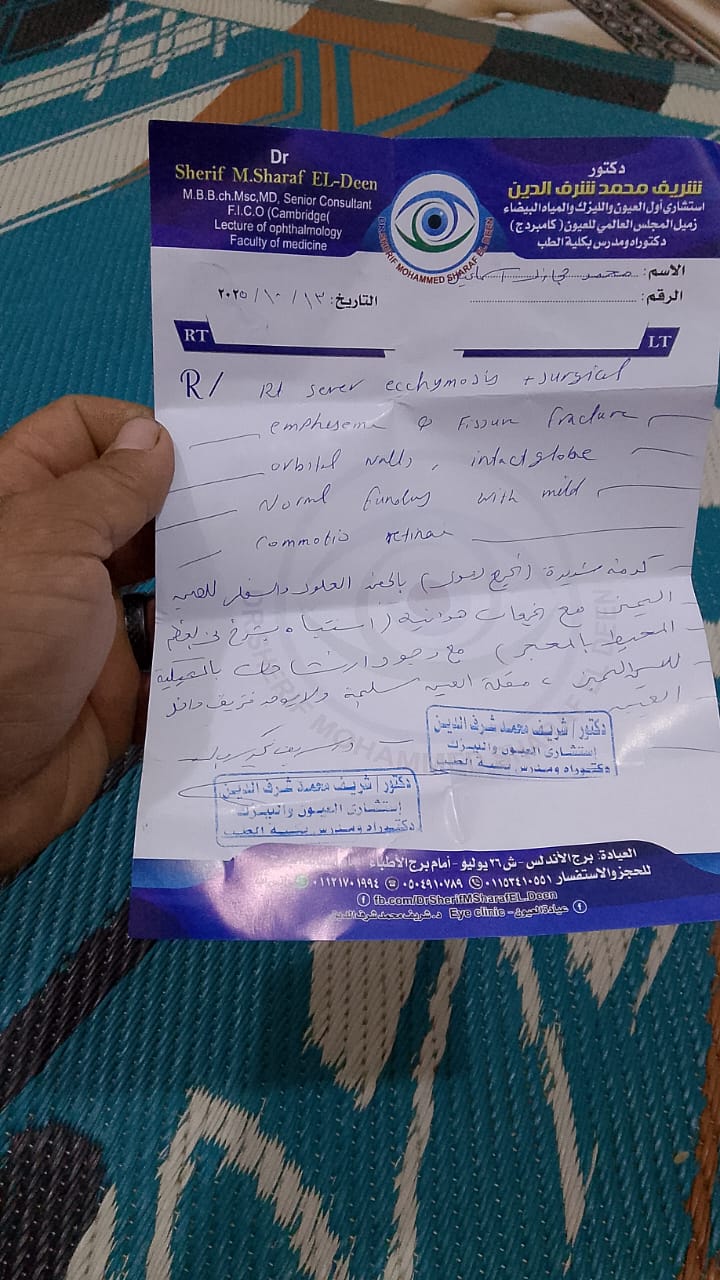 Dr
Sherif M.Sharaf EL-Deen
M.B.B.ch.Msc,MD, Senior Consultant
F.I.C.O (Cambridge(
Lecture of ophthalmology
Faculty of medicine
دكتور
شريف محمد شرف الدين
استشاري أول العيون والليزك والمياه البيضاء
زميل المجلس العالمي للعيون (كامبردج)
دكتوراه ومدرس بكلية الطب
DR.SHERIF MOHAMMED SHARAF EL DEEN
الاسم: محمد
الرقم:
التاريخ: ١٣ / ١٠ / ٢٠٢٥
RT
LT
R/ Rt sever ecchymosis + surgical
emphysema Fissure fracture
orbital walls, intact globe
Normal with mild
Commotio retinae
كدمة شديدة بالجفن العلوي والسفلي للعين
اليمنى مع هوائية (اشتباه شرخ
المحيط بالمحجر) مع وجود ارتشاحات بالشبكية
مقلة العين سليمة ولا يوجد نزيف داخل
العين
دكتور / شريف محمد شرف الدين
إستشارى العيون والليزك
دكتوراه ومدرس بكلية الطب
دكتور / شريف محمد شرف الدين
إستشارى العيون والليزك
دكتوراه ومدرس بكلية الطب
العيادة: برج الأندلس - ش ٢٦ يوليو - أمام برج الأطباء
للحجز والاستفسار ٠١١٥٣٤١٠٥٥١ ٠٥٠٤٩١٠٧٨٩ ٠١١٢١٧٠١٩٩٤
fb.com/DrSherifMSharafEL.Deen
عيادة العيون - Eye clinic د. شريف محمد شرف الدين